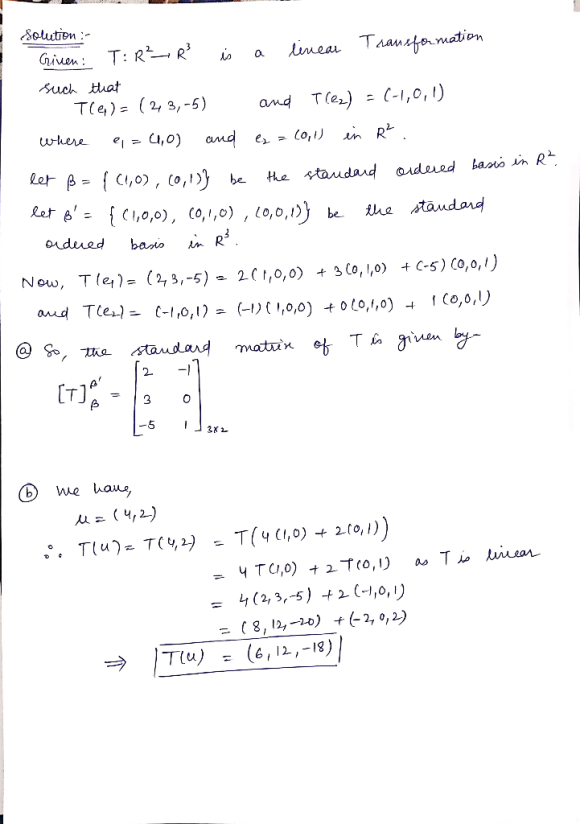 Solution :-
Given : T: R² → R³ is a linear Transformation
such that
T(e₁) = (2, 3, -5) and T(e₂) = (-1, 0, 1)
where e₁ = (1,0) and e₂ = (0,1) in R².
let β = { (1,0), (0,1)} be the standard ordered basis in R².
let β' = { (1,0,0), (0,1,0), (0,0,1)} be the standard
ordered basis in R³.
Now, T(e₁) = (2,3,-5) = 2(1,0,0) + 3(0,1,0) + (-5)(0,0,1)
and T(e₂) = (-1,0,1) = (-1)(1,0,0) + 0(0,1,0) + 1(0,0,1)
ⓐ So, the standard matrix of T is given by-
[T]
β'
β
=
[2 -1
3 0
-5 1]
3×2
ⓑ We have,
u = (4,2)
∴ T(u) = T(4,2) = T(4(1,0) + 2(0,1))
= 4T(1,0) + 2T(0,1) as T is linear
= 4(2,3,-5) + 2(-1,0,1)
= (8,12,-20) + (-2,0,2)
⇒ T(u) = (6,12,-18)